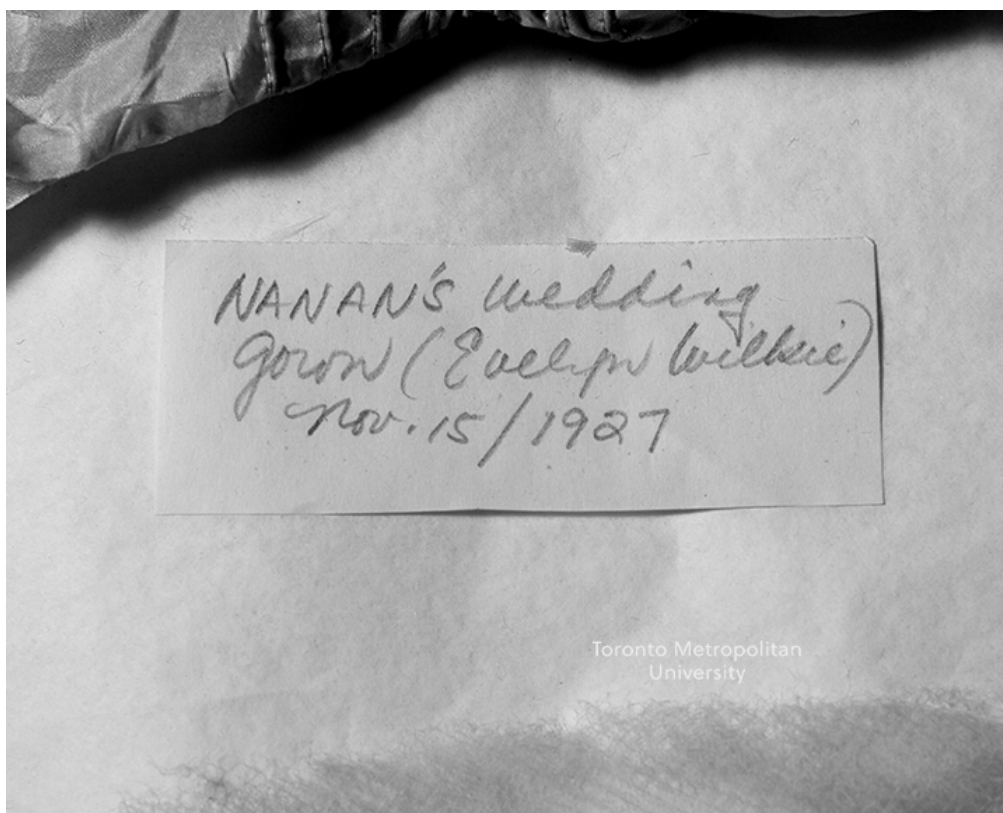 NANAN'S wedding
Gown (Evelyn Wilkie)
Nov. 15/1927
Toronto Metropolitan
University